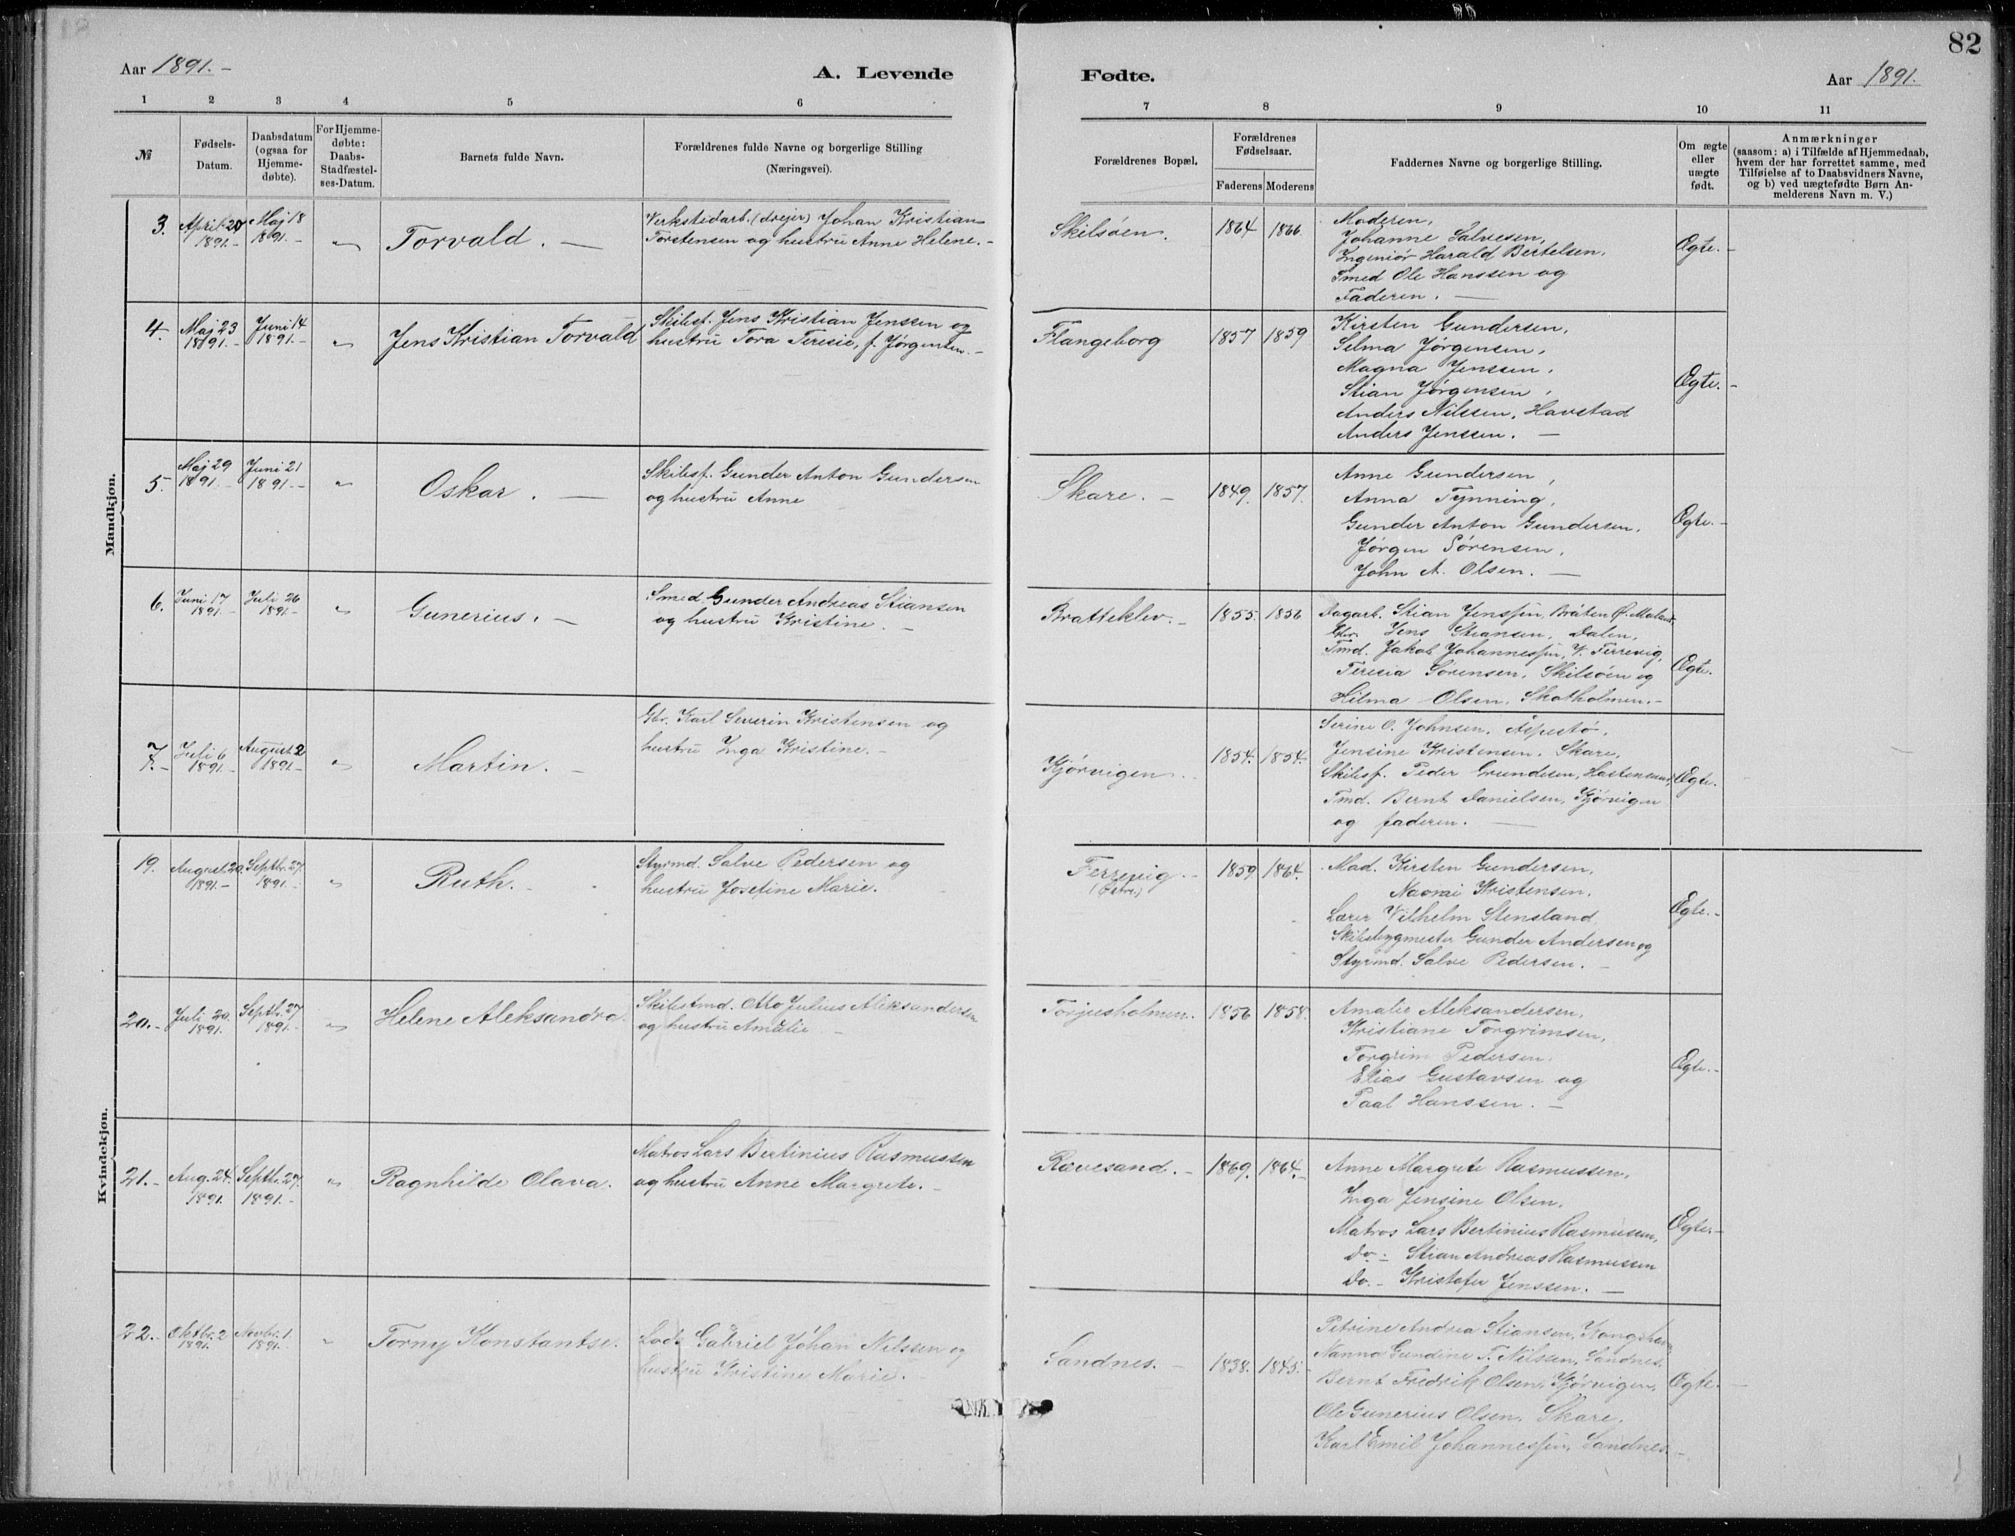 82
Aar 1891.-
A. Levende
Fødte.
Aar 1891.
1 2 3 4 5 6
7 8 9 10 11
№
Fødsels-
Datum.
Daabsdatum
(ogsaa for
Hjemme-
døbte).
For Hjemme-
døbte:
Daabs-
Stadfæstel-
ses-Datum.
Barnets fulde Navn.
Forældrenes fulde Navne og borgerlige Stilling
(Næringsvei).
Forældrenes Bopæl.
Forældrenes
Fødselsaar.
Faderens Moderens
Faddernes Navne og borgerlige Stilling.
Om ægte
eller
uægte
født.
Anmærkninger
(saasom: a) i Tilfælde af Hjemmedaab,
hvem der har forrettet samme, med
Tilføielse af to Daabsvidners Navne,
og b) ved uægtefødte Børn An-
melderens Navn m. V.)
Mandkjøn.
3. April 20 1891.- Maj 18 1891.- " Torvald. —
Verkstedarb. (drejer) Johan Kristian
Torstensen og hustru Anne Helene.-
Skilsøen. 1864 1866.
Moderen,
Johanne Salvesen,
Ingeniør Harald Bertelsen,
Tmed Ole Hanssen og
Faderen. —
Ægte.-
4. Maj 23 1891.- Juni 14 1891.- " Jens Kristian Torvald
Skibsf. Jens Kristian Jenssen og
hustru Tora Teresie, f. Jørgensen.-
Flangeborg 1857 1859
Kirsten Gundersen,
Selma Jørgensen,
Magna Jenssen,
Stian Jørgensen,
Anders Nilssen, Havstad
Anders Jenssen. —
Ægte.-
5. Maj 29 1891.- Juni 21 1891.- " Oskar. —
Skibsf. Gunder Anton Gundersen
og hustru Anne
Skare.- 1849. 1857.
Anne Gundersen,
Anna Tynning,
Gunder Anton Gundersen,
Jørgen Sørensen,
John A. Olsen. —
Ægte.-
6. Juni 17 1891.- Juli 26 1891.- " Gunerius. —
Smed Gunder Andreas Stiansen
og hustru Kristine. -
Bratteklev.- 1855. 1856
Dagarb. Stian Jenssen, Bråten
Gbr. Jens Stiansen, Dalen,
Tmd. Jakob Johannessen, V. Ferrevig,
Teresia Sørensen, Skilsøen og
Hilma Olsen, Skotholmen.-
Ægte.
7.- Juli 6 1891.- August 2 1891.- " Martin. -
Gbr. Karl Severin Kristensen og
hustru Inga Kristine.-
Kjørvigen. 1854. 1854.
Serine O. Johnsen,
Jensine Kristensen, Skare,
Skibsf. Peder Gundersen, Hastensund,
Tmd. Bernt Danielsen, Kjørvigen
og faderen. —
Ægte.
Kvindekjøn.
19. August 20. 1891.- Septbr. 27. 1891.- " Ruth. -
Styrmd. Salve Pedersen og
hustru Josefine Marie. -
Ferrevig.-
(Østre)
1859 1864.
Mad. Kirsten Gundersen,
Naomi Kristensen,
Lærer Vilhelm Stensland
Skibsbygmester Gunder Andersen og
Styrmd. Salve Pedersen. -
Ægte.-
20.- Juli 20. 1891.- Septbr. 27 1891.- " Helene Aleksandra.
Skibstmd. Otto Julius Aleksandersen
og hustru Amalie -
Torjusholmen. 1856 1858.
Amalie Aleksandersen,
Kristiane Torgrimsen,
Torgrim Pedersen,
Elias Gustavsen og
Paal Hanssen. —
Ægte.-
21.- Aug. 24. 1891. Septbr. 27. 1891. " Ragnhilde Olava.
Matros Lars Bertinius Rasmussen
og hustru Anne Margrete.-
Rævesand.- 1869. 1864.-
Anne Margrete Rasmussen,
Inga Jensine Olsen,
Matros Lars Bertinius Rasmussen,
Do.- Stian Andreas Rasmussen
Do.- Kristofer Jenssen. —
Ægte.-
22.- Oktbr. 2 1891. Novbr. 1. 1891. " Torny Konstantse.
Lods Gabriel Johan Nilssen og
hustru Kristine Marie.-
Sandnes.- 1838. 1845.
Petrine Andrea Stiansen,
Nanna Gundine T. Nilssen, Sandnes,
Bernt Fredrik Olsen, Kjørvigen,
Ole Gunerius Olsen, Skare,
Karl Emil Johannessen, Sandnes.-
Ægte.-